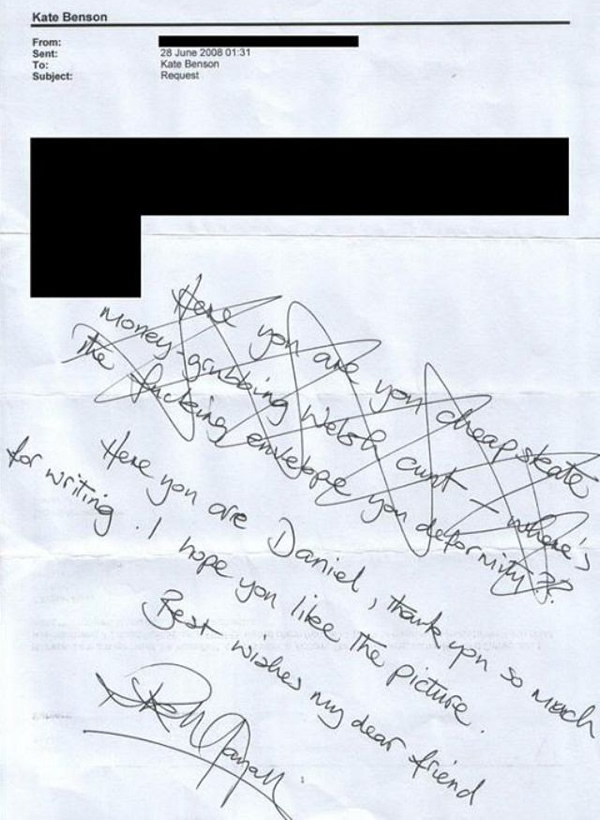 Kate Benson
From:
Sent: 28 June 2008 01:31
To: Kate Benson
Subject: Request
Here you are you cheapskate
money-grubbing Welsh cunt – where's
the fucking envelope you deformity??
Here you are Daniel, thank you so much
for writing. I hope you like the picture.
Best wishes my dear friend